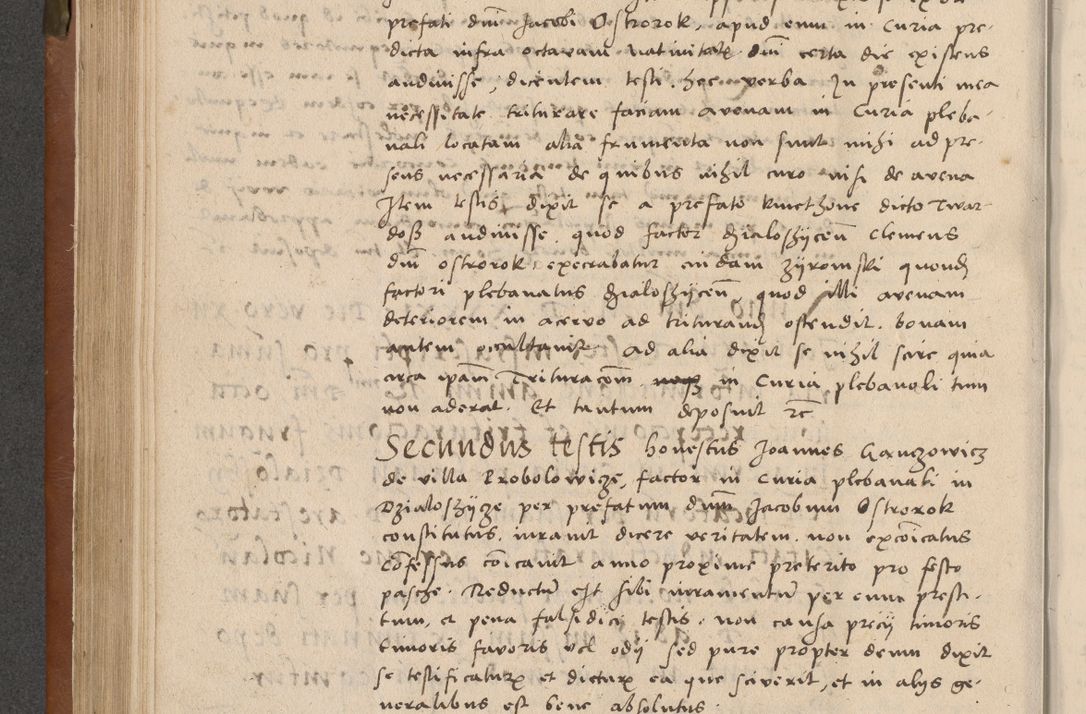 prefati dnm̄ Jacobi Ostrorok, apud eum in Curia pre-
dicta infra octavam nativitatis dnī certa die existens
audivisse, dicentem testi hec verba In presenti mea
necessitate triturare faciam avenam in Curia pleba-
nali locatam alia frumenta non sunt mihi ad pre-
sens necessaria de quibus nihil curo nisi de avena
Item testis dixit se a prefato kmethone dicto Twar-
doß audivisse quod factor dzialoszycen̄ Clemens
dnī ostrorok execrabatur cuidam zyromski quond
factori plebanatus dzialoszycen̄, quod illi avenam
deteriorem in acervo ad triturand ostendit. bonam
autem ocultavit. Ad alia dixit se nihil scire quia
circa ipam triturac̄om̄ in Curia plebanali tum
non aderat. Et tantum deposuit rē
Secundus testis honestus Joannes
de villa Probolowicze, factor in Curia plebanali in
Dzialoszycze per prefatum dnm̄ Jacobum Ostrorok
constitutus, iuravit dicere veritatem, non excoīcatus
Confessus coīcavit anno proxime preterito pro festo
pasche. Deductū est sibi iuramentū per eum presti-
tum, et pena falsidici testis. non causa precij timoris
timoris favoris vel odij sed pure propter deum dixit
se testificaturū et dicturū ea que sciverit, et in alijs ge-
neralibus est bene absolutus.